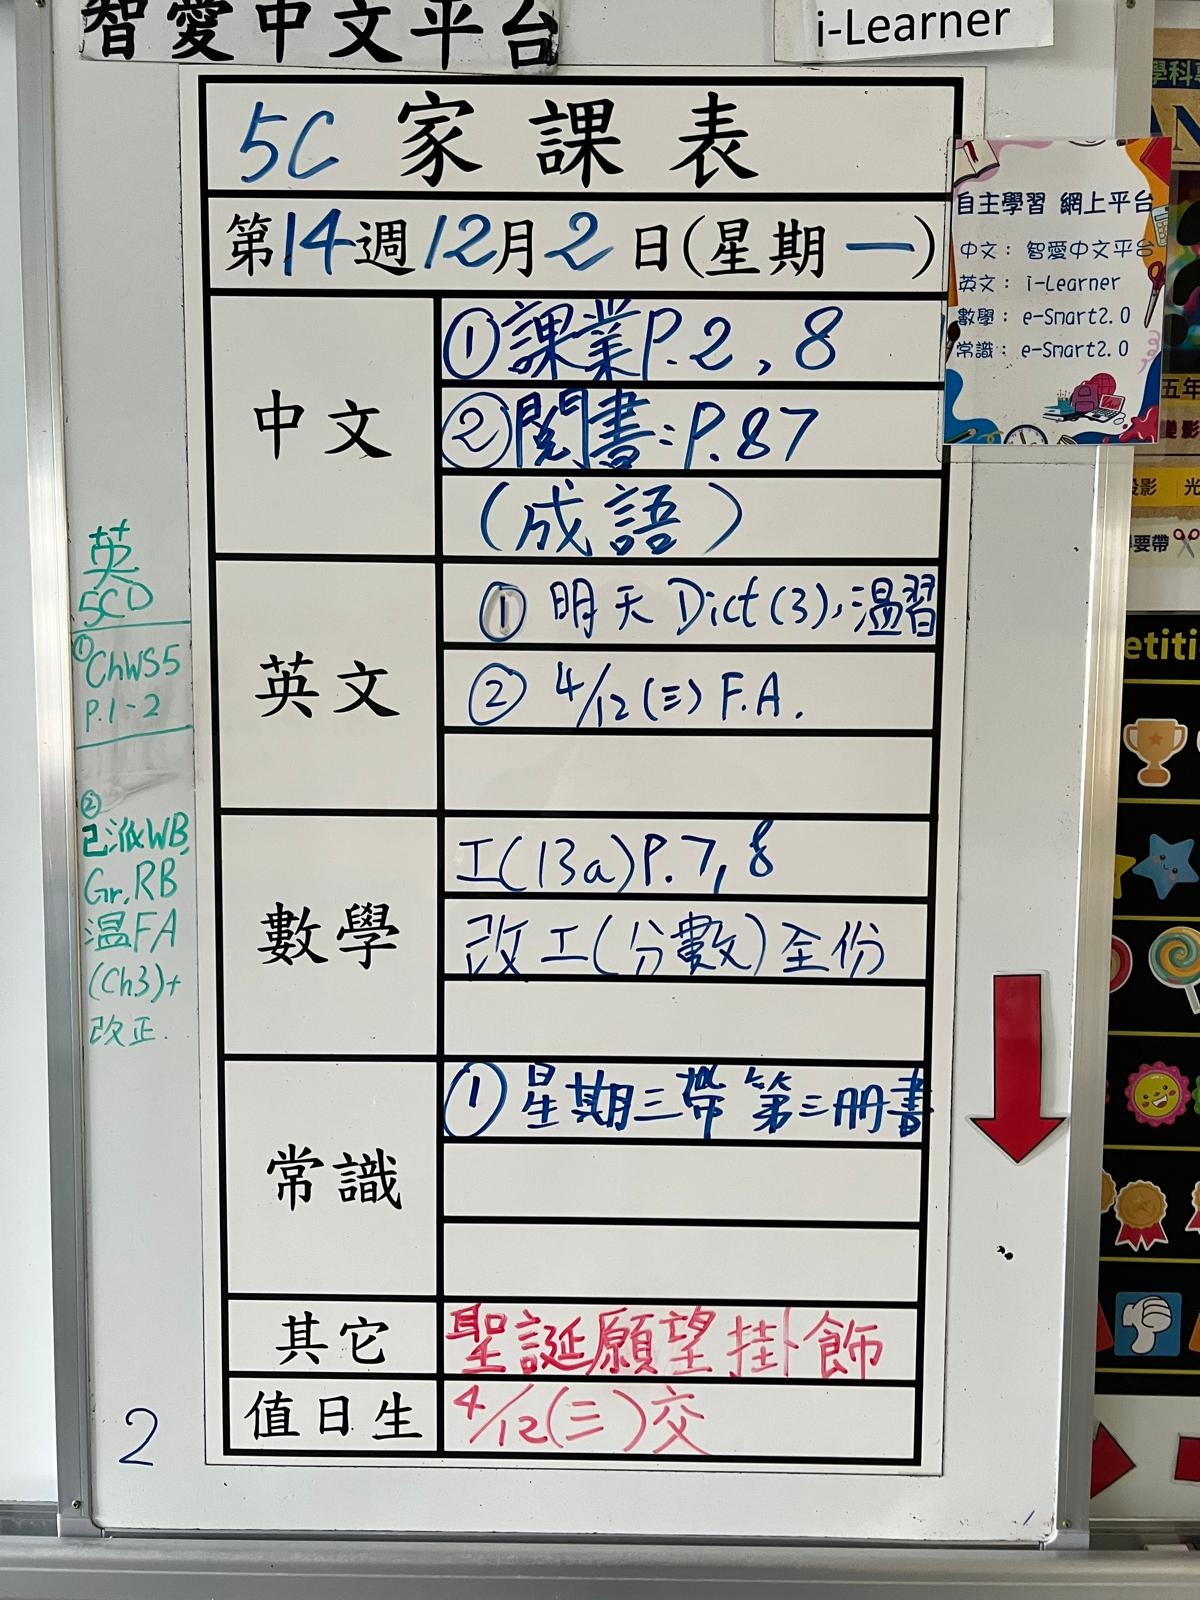 智愛中文平台
i-Learner
5C 家課表
第14週12月2日(星期一)
中文
①課業P.2,8
②閱書:P.87
(成語)
英文
① 明天 Dict(3),溫習
② 4/12(三) F.A.
數學
工(13a)P.7,8
改工(分數)全份
常識
① 星期三帶第三冊書
其它
聖誕願望掛飾
值日生
4/12(三)交
英
5CD
①ChWS5
P.1-2
②
已派WB,
Gr,RB
溫FA
(Ch3)+
改正.
2
自主學習 網上平台
中文: 智愛中文平台
英文: i-Learner
數學: e-Smart2.0
常識: e-Smart2.0
學科
AN
五年
變影
投影
光
要帶
etiti